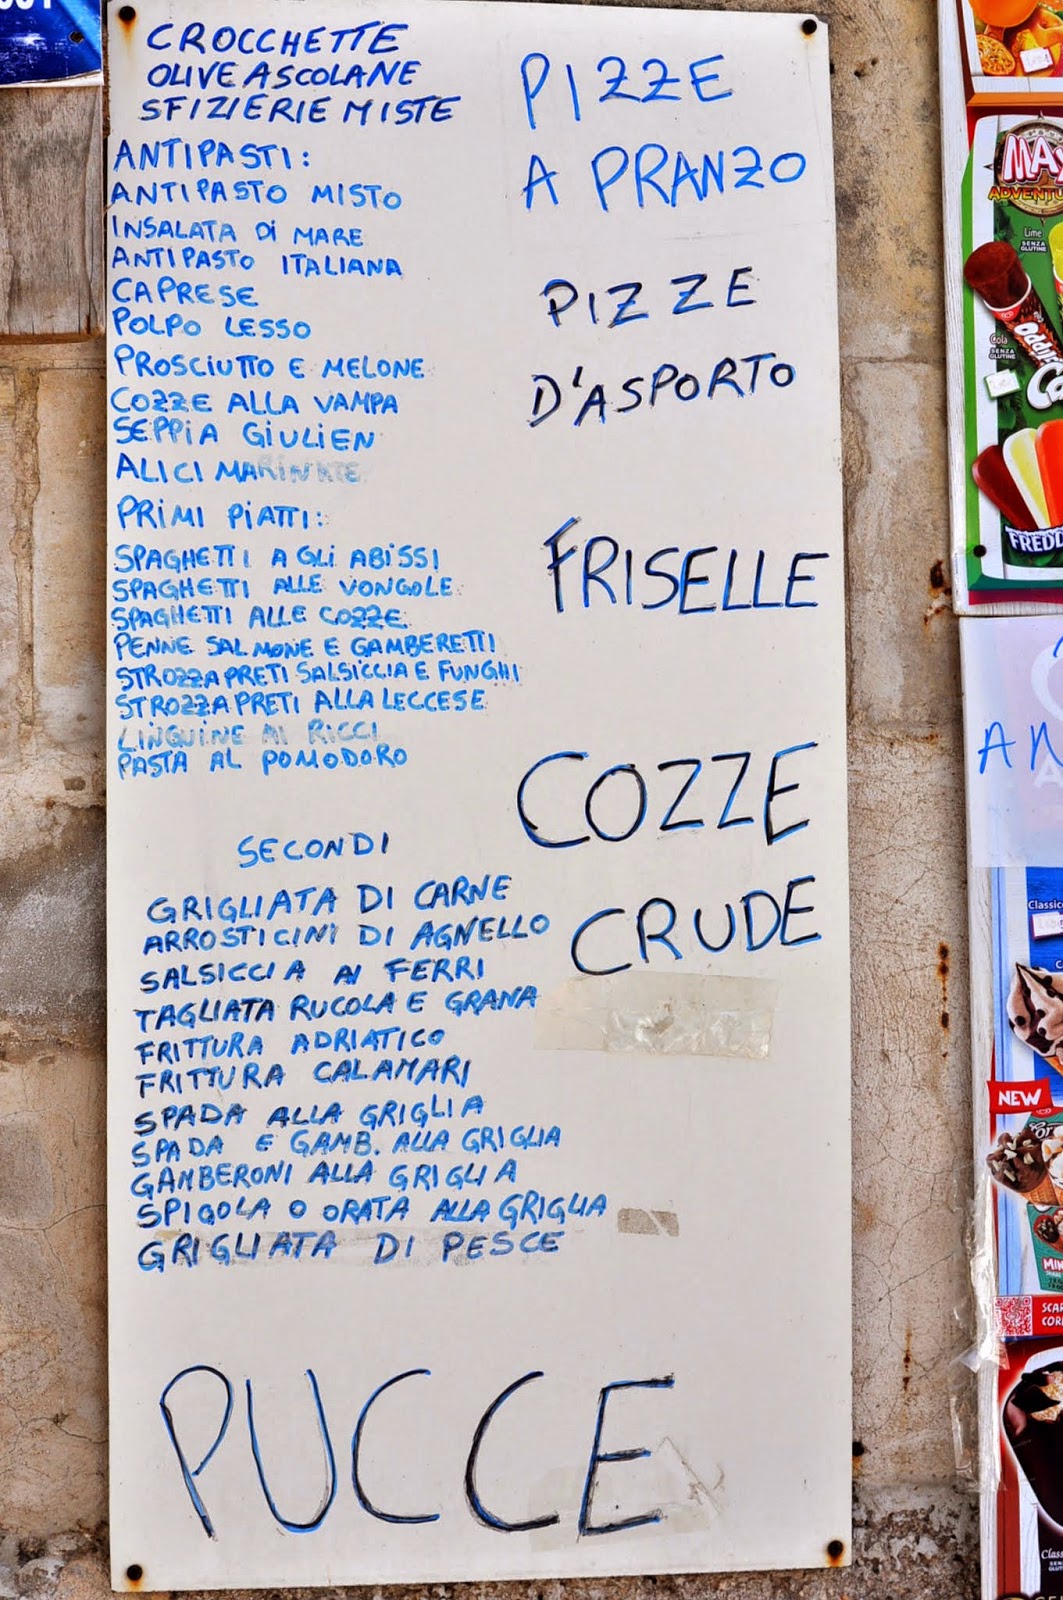 CROCCHETTE
OLIVE ASCOLANE
SFIZIERIE MISTE
ANTIPASTI:
ANTIPASTO MISTO
INSALATA DI MARE
ANTIPASTO ITALIANA
CAPRESE
POLPO LESSO
PROSCIUTTO E MELONE
COZZE ALLA VAMPA
SEPPIA GIULIEN
ALICI MARINATE
PRIMI PIATTI:
SPAGHETTI A GLI ABISSI
SPAGHETTI ALLE VONGOLE
SPAGHETTI ALLE COZZE
PENNE SALMONE E GAMBERETTI
STROZZAPRETI SALSICCIA E FUNGHI
STROZZAPRETI ALLA LECCESE
LINGUINE AI RICCI
PASTA AL POMODORO
SECONDI
GRIGLIATA DI CARNE
ARROSTICINI DI AGNELLO
SALSICCIA AI FERRI
TAGLIATA RUCOLA E GRANA
FRITTURA ADRIATICO
FRITTURA CALAMARI
SPADA ALLA GRIGLIA
SPADA E GAMB. ALLA GRIGLIA
GAMBERONI ALLA GRIGLIA
SPIGOLA O ORATA ALLA GRIGLIA
GRIGLIATA DI PESCE
PUCCE
PIZZE
A PRANZO
PIZZE
D'ASPORTO
FRISELLE
COZZE
CRUDE
MAX
Lime
SENZA GLUTINE
Cola
SENZA GLUTINE
AN
NEW